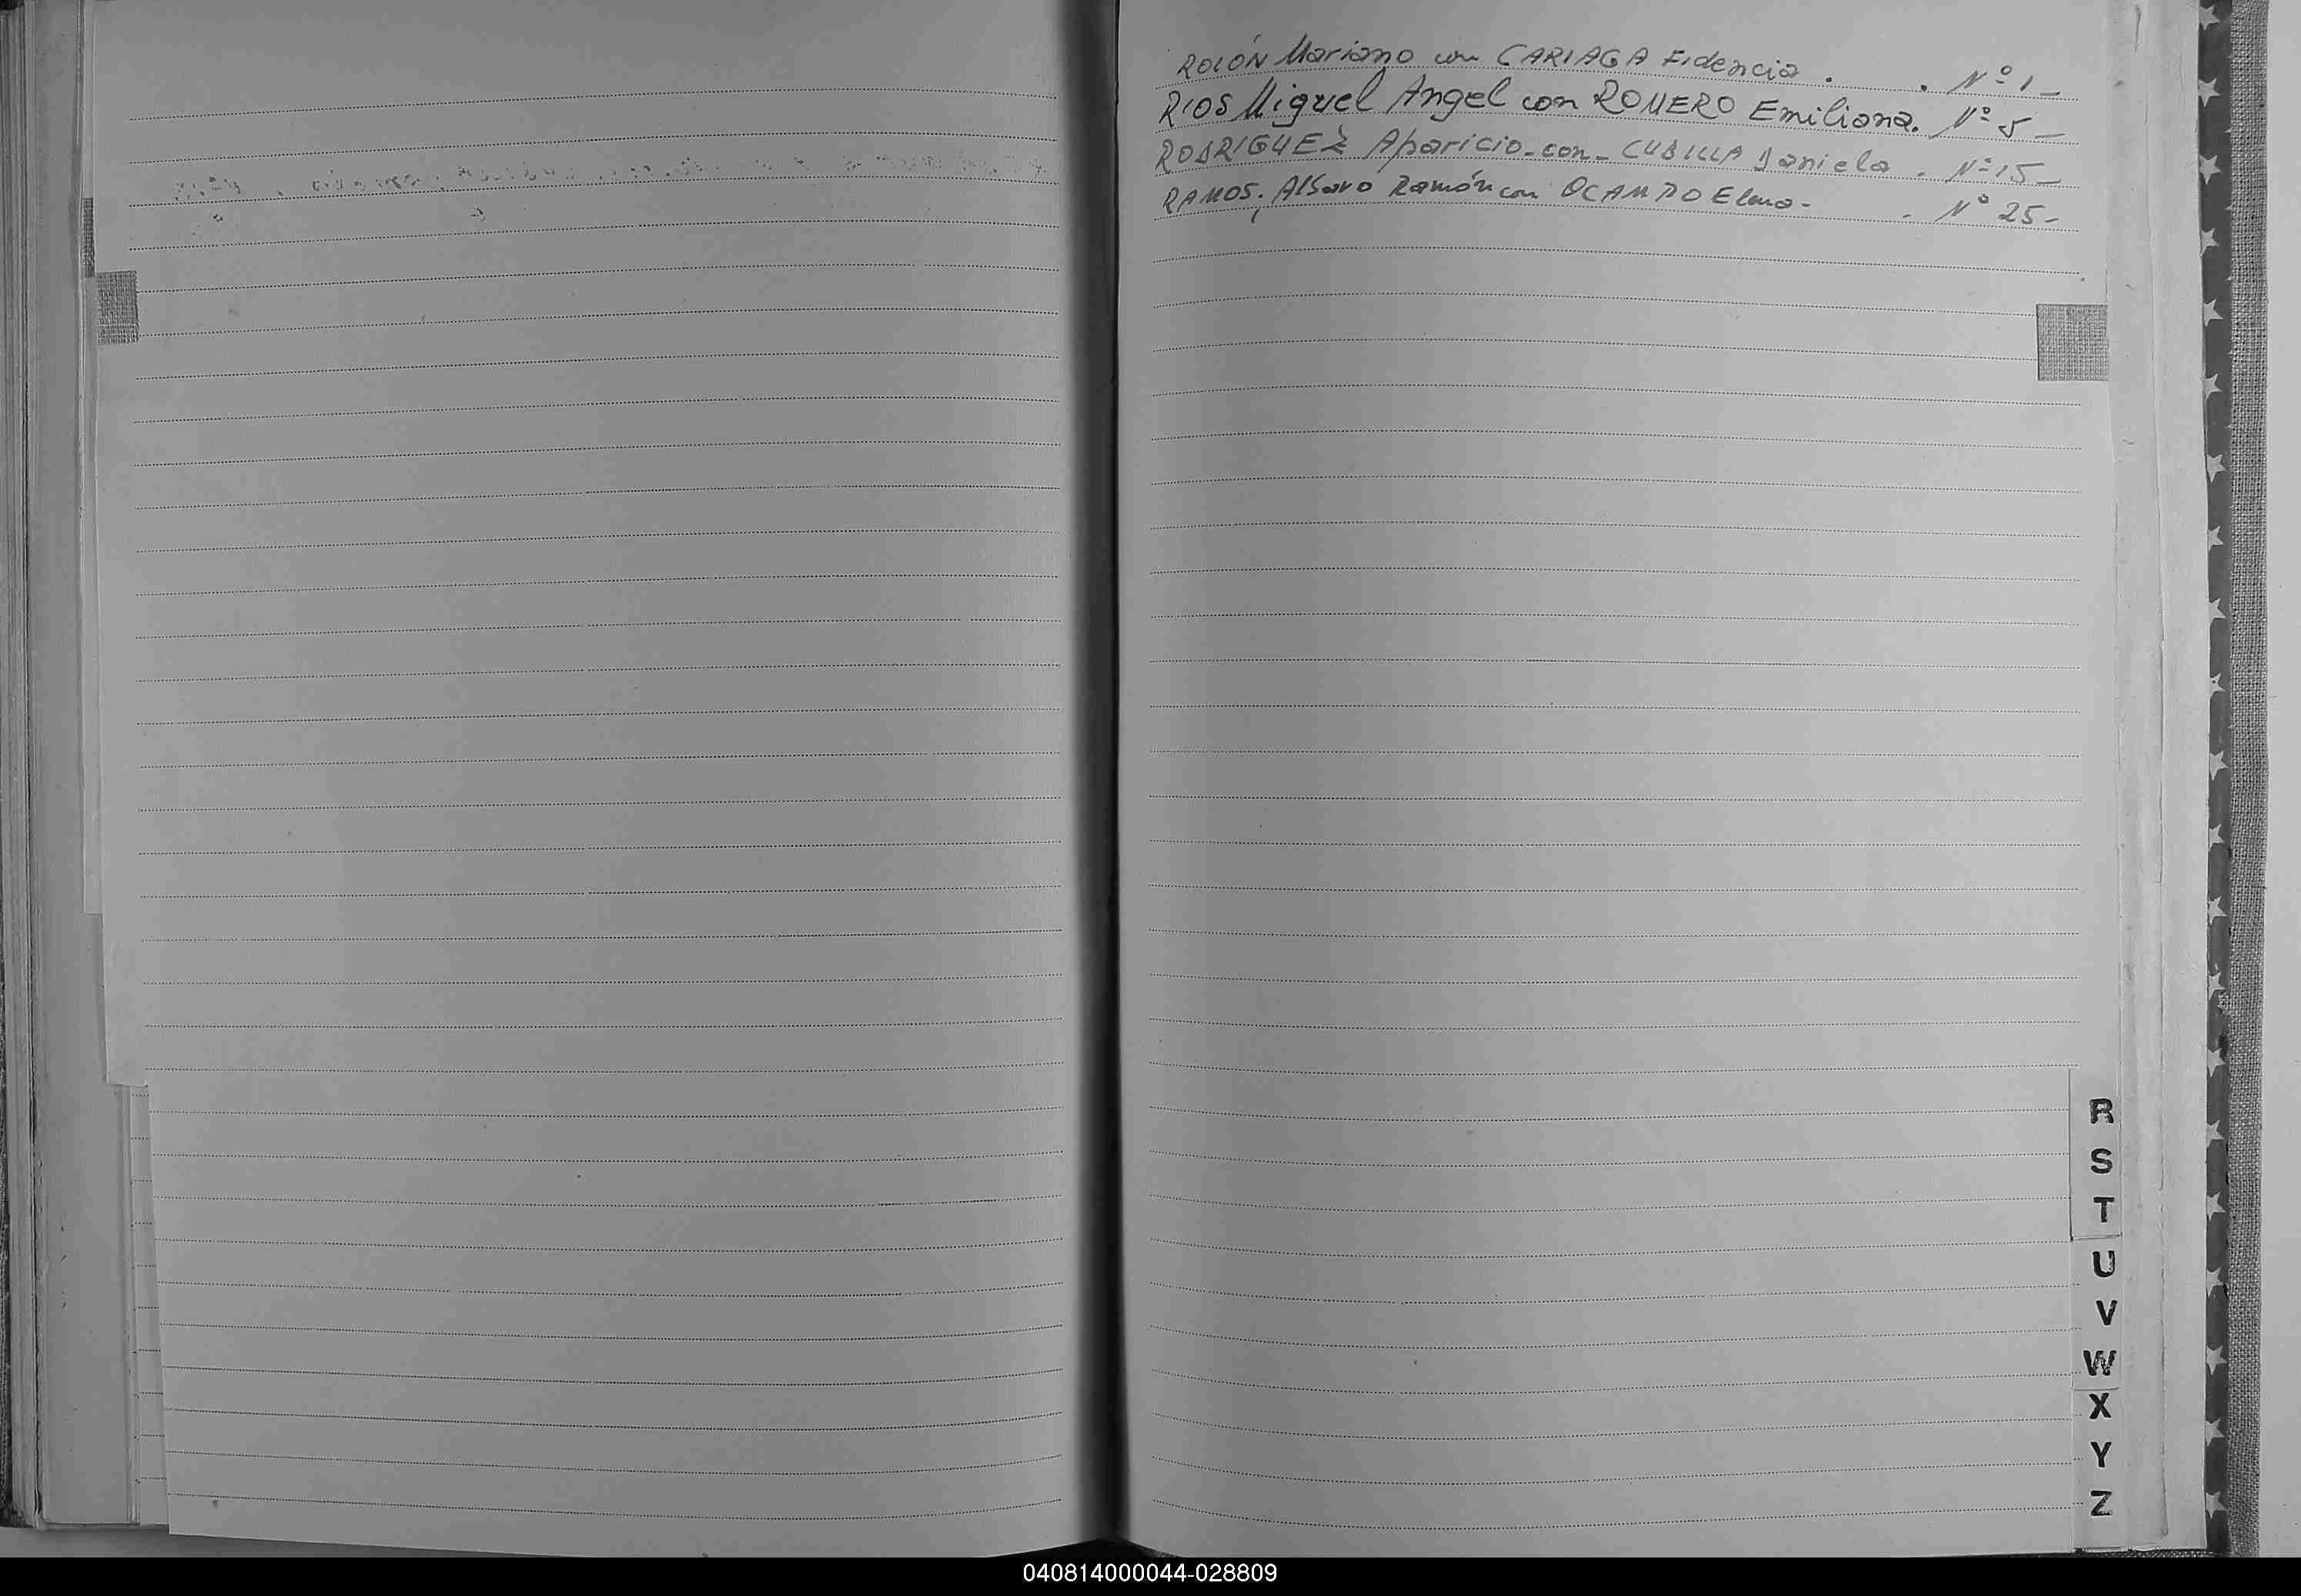 ROLÓN Mariano con CARIAGA Fidencia . . Nº 1 -
RIOS Miguel Angel con ROMERO Emiliana. Nº 5 -
RODRIGUEZ Aparicio - con - CUBILLA Daniela . Nº 15 -
RAMOS, Ramón con OCAMPO Elena - . Nº 25 -
R
S
T
U
V
W
X
Y
Z
040814000044-028809